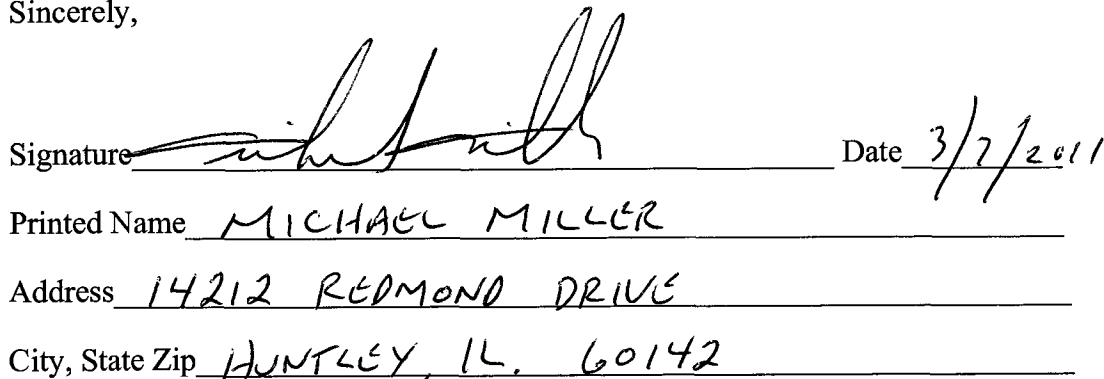 Sincerely,
Signature Date 3/7/2011
Printed Name MICHAEL MILLER
Address 14212 REDMOND DRIVE
City, State Zip HUNTLEY, IL. 60142